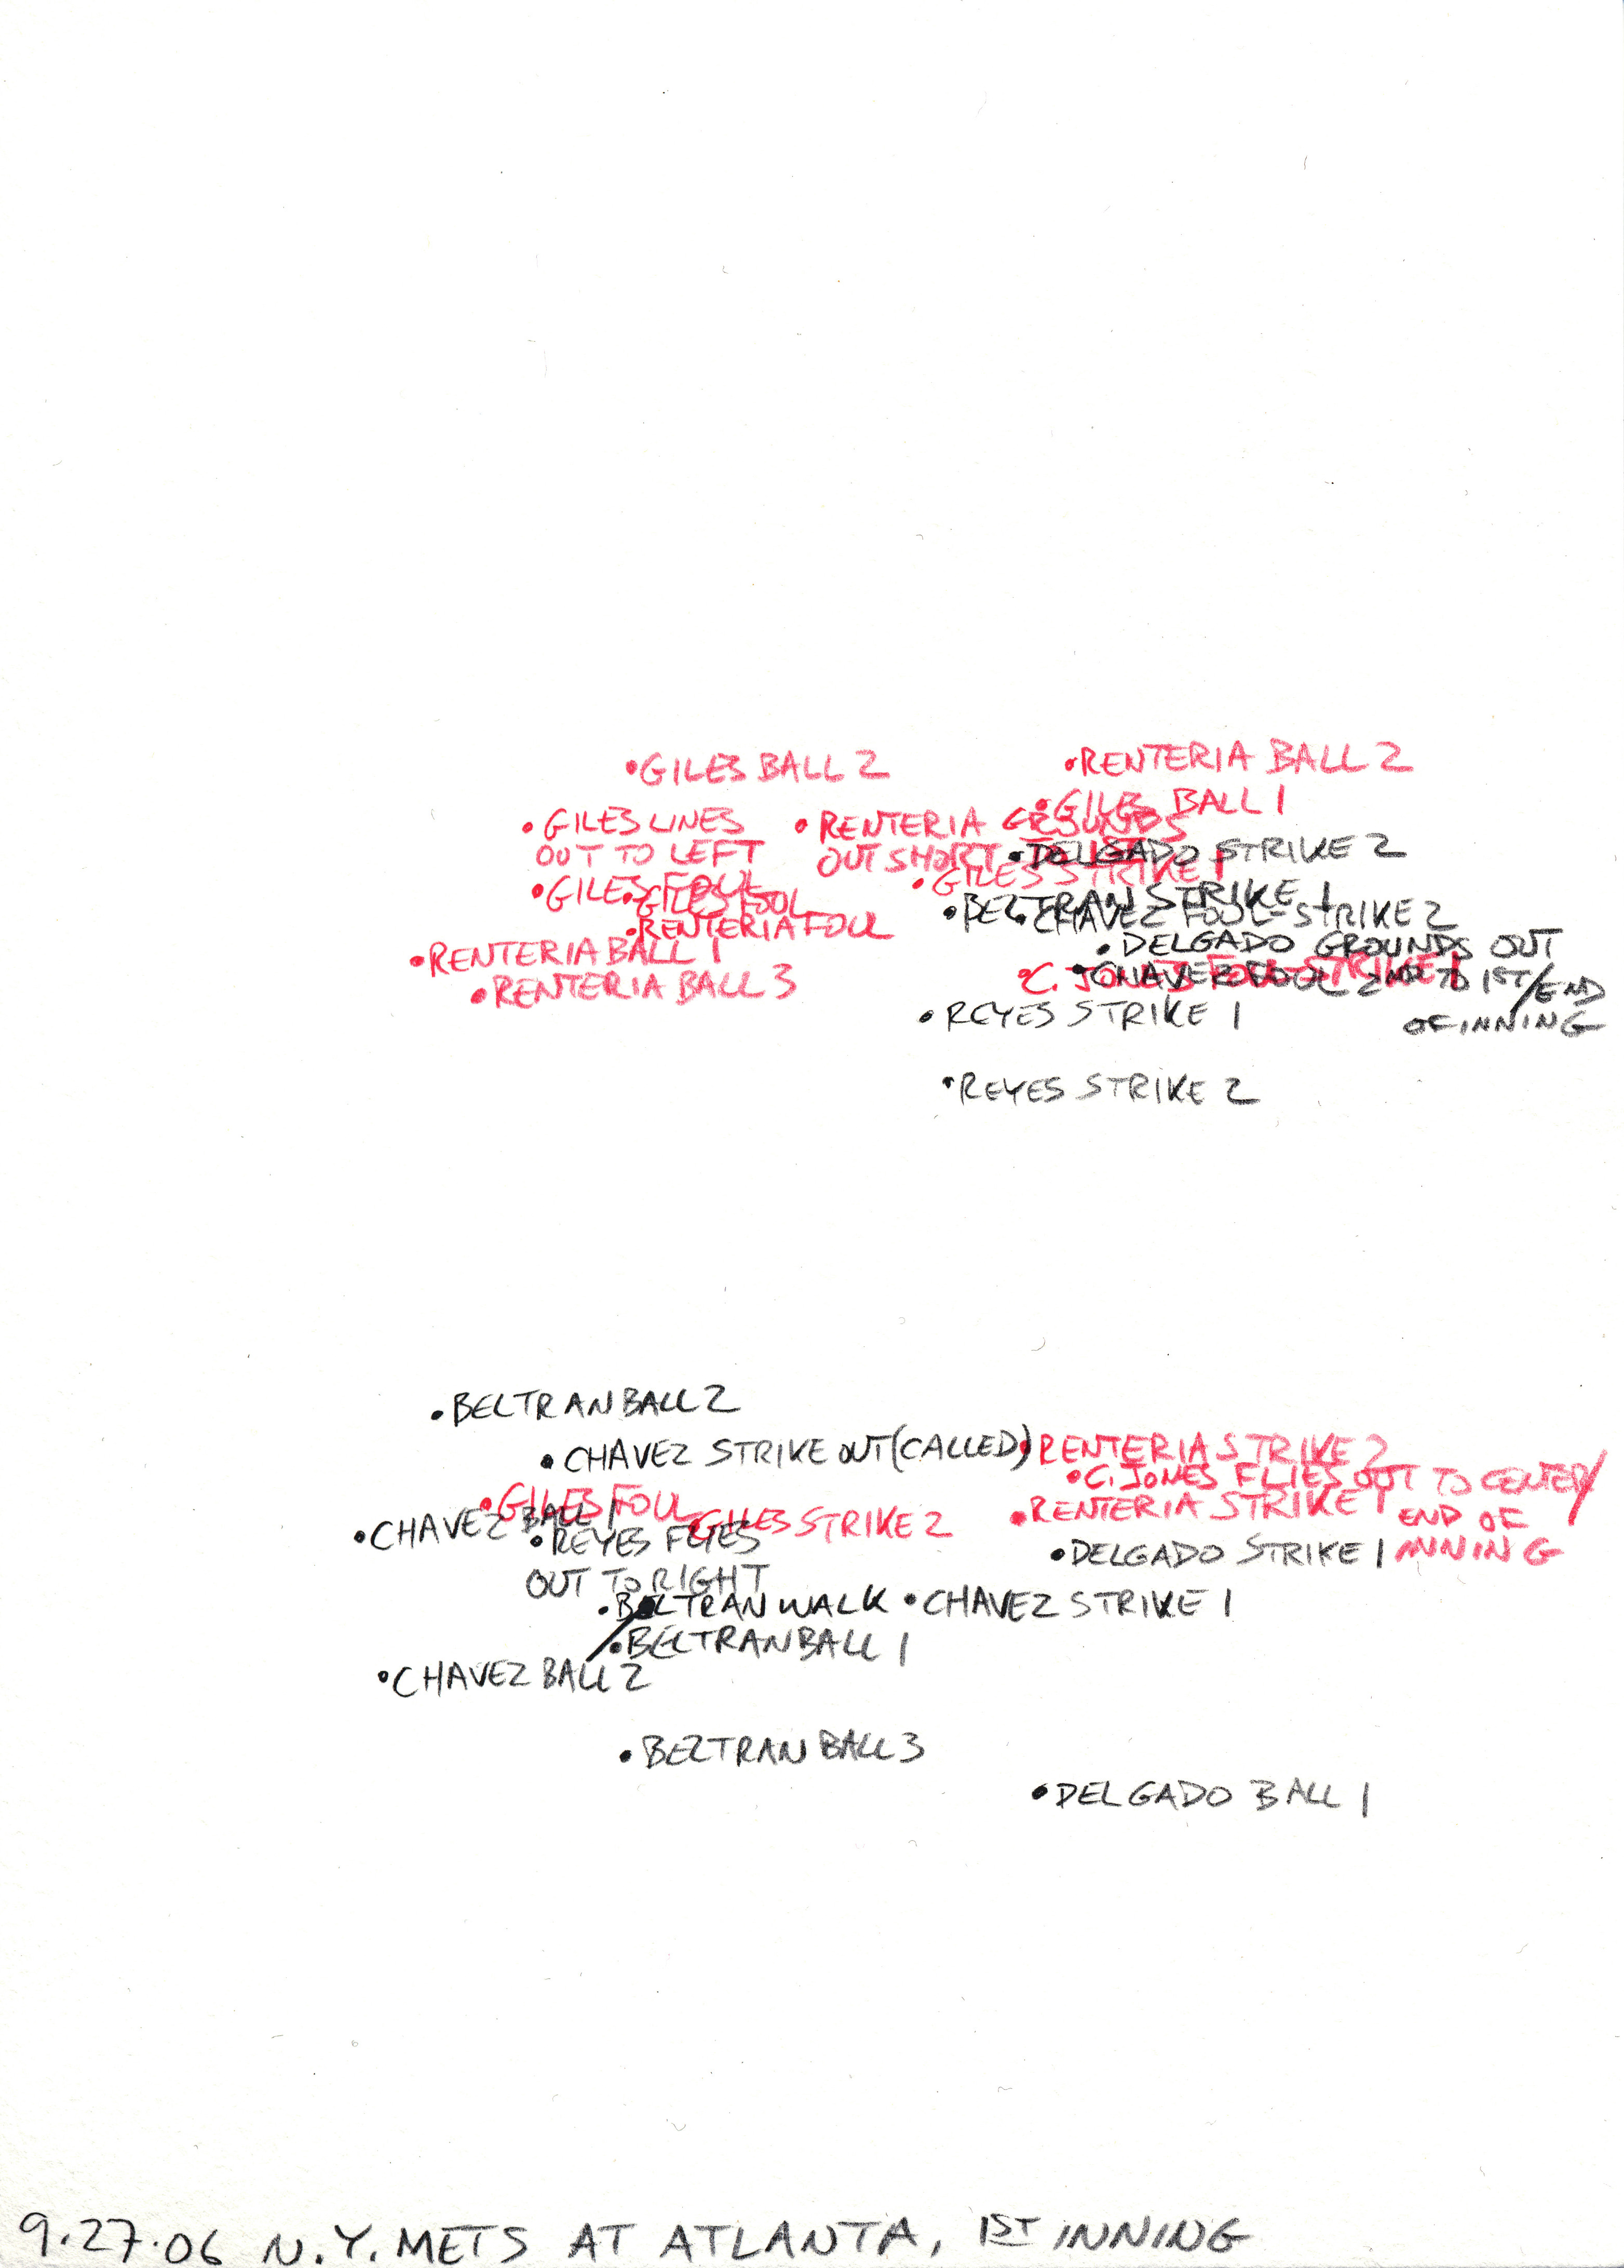 •GILES BALL 2
•RENTERIA BALL 2
•GILES BALL 1
•GILES LINES
OUT TO LEFT
•RENTERIA GROUNDS
OUT SHORT TO 1ST
•DELGADO STRIKE 2
•GILES STRIKE 1
•GILES FOUL
•GILES FOUL
•BELTRAN STRIKE 1
•CHAVEZ FOUL-STRIKE 2
•RENTERIA FOUL
•DELGADO GROUNDS OUT
2ND TO 1ST/END
OF INNING
•RENTERIA BALL 1
•C. JONES FOUL-STRIKE 1
•CHAVEZ FOUL
•RENTERIA BALL 3
•REYES STRIKE 1
•REYES STRIKE 2
•BELTRAN BALL 2
•CHAVEZ STRIKE OUT (CALLED)
•RENTERIA STRIKE 2
•C. JONES FLIES OUT TO CENTER/
END OF
INNING
•GILES FOUL
•RENTERIA STRIKE 1
•CHAVEZ BALL 1
•GILES STRIKE 2
•REYES FLIES
OUT TO RIGHT
•DELGADO STRIKE 1
•BELTRAN WALK
•CHAVEZ STRIKE 1
•BELTRAN BALL 1
•CHAVEZ BALL 2
•BELTRAN BALL 3
•DELGADO BALL 1
9.27.06 N.Y. METS AT ATLANTA, 1ST INNING